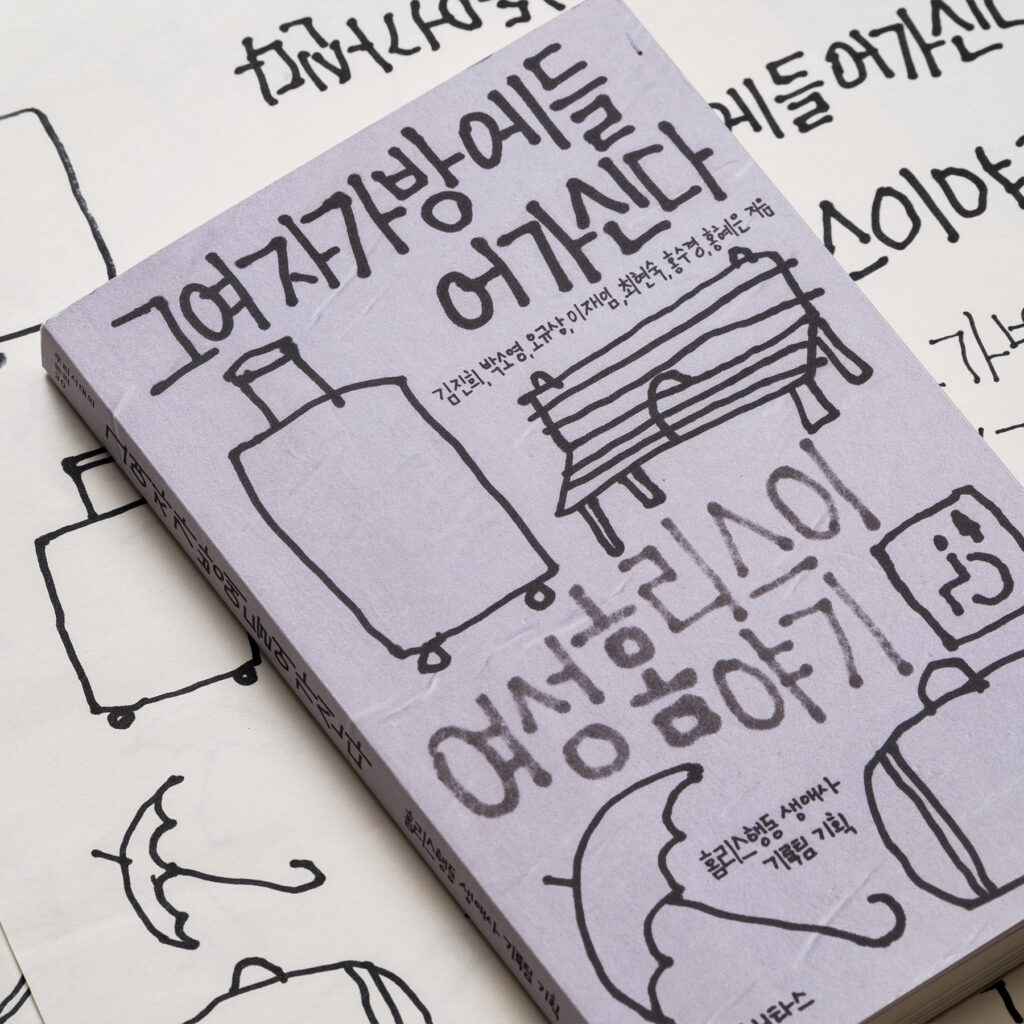 그여자가방에들
어가신다
김진희, 박소영, 오규상, 이재임, 최현숙, 홍수경, 홍혜은 지음
여성홈리스이
야기
홈리스행동 생애사
기록팀 기획
그여자가방에들어가신다
홈리스행동 생애사 기록팀 기획
에들어가신
스이야